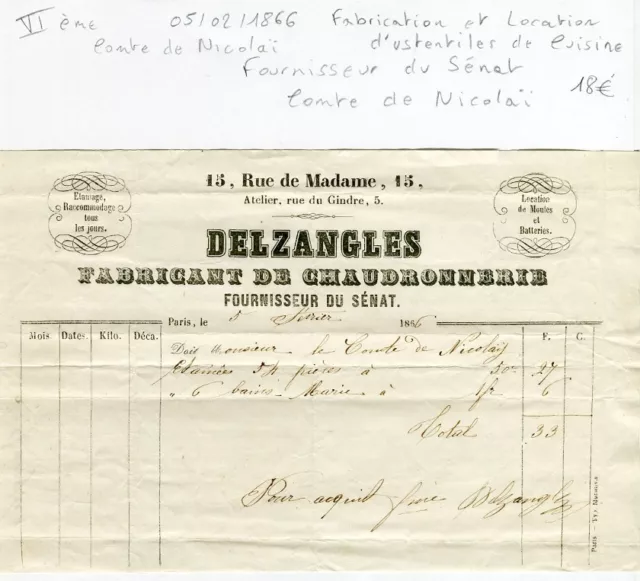 VI ème 05/02/1866 Fabrication et Location
Comte de Nicolaï d'ustentiles de Cuisine
Fournisseur du Sénat
Comte de Nicolaï 18€
15, Rue de Madame, 15,
Atelier, rue du Gindre, 5.
Etamage,
Raccommodage
tous
les jours.
Location
de Moules
et
Batteries.
DELZANGLES
FABRICANT DE CHAUDRONNERIE
FOURNISSEUR DU SÉNAT.
Paris, le 5 février 1866
Mois. Dates. Kilo. Déca. F. C.
Doit Monsieur le Comte de Nicolaÿ
Etamées 54 pièces à 50c 27
" 6 bains Marie à 1fr 6
Total 33
Pour acquit Delzangles
Paris — Typ.